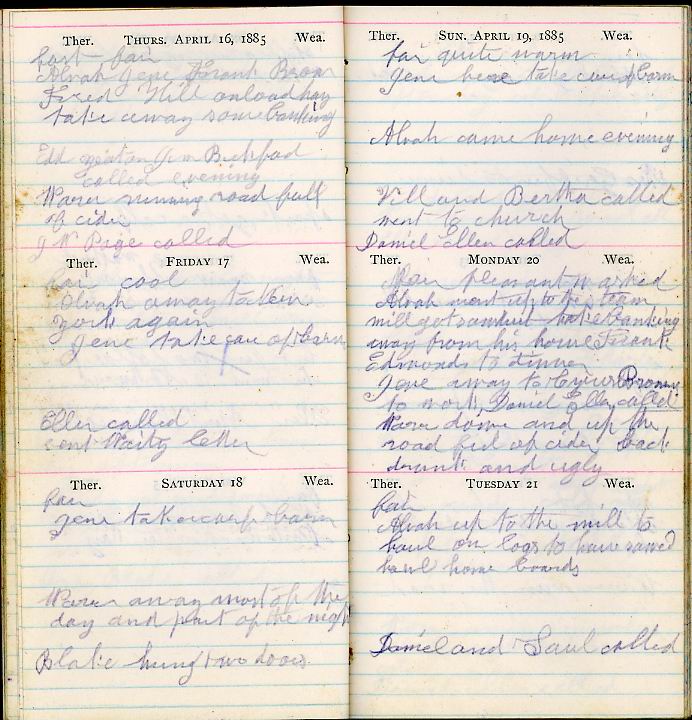 Ther. THURS. APRIL 16, 1885 Wea.
fair
Alvah Gene Frank Brown
Fred Hill onload hay
take away some banking
Edd Jim Bickford
called evening
Waren running road full
of cider
J W Page called
Ther. FRIDAY 17 Wea.
fair cool
Alvah away to Ken
York again
Gene take care of barn
Ellen called
sent letter
Ther. SATURDAY 18 Wea.
fair
Gene take care of barn
Waren away most of the
day and part of the night
Blake hung two doors
Ther. SUN. APRIL 19, 1885 Wea.
fair quite warm
Gene here take care of barn
Alvah came home evening
Will and Bertha called
went to church
Daniel Ellen called
Ther. MONDAY 20 Wea.
Fair pleasant washed
Alvah went up to the steam
mill get sawdust take banking
away from his home Frank
Edmonds to dinner
Gene away to Cyrus Browns
to work, Daniel Ellen called
Waren down and up the
road full of cider back
drunk and ugly
Ther. TUESDAY 21 Wea.
fair
Alvah up to the mill to
haul on logs to have sawed
haul home boards
Daniel and Saul called